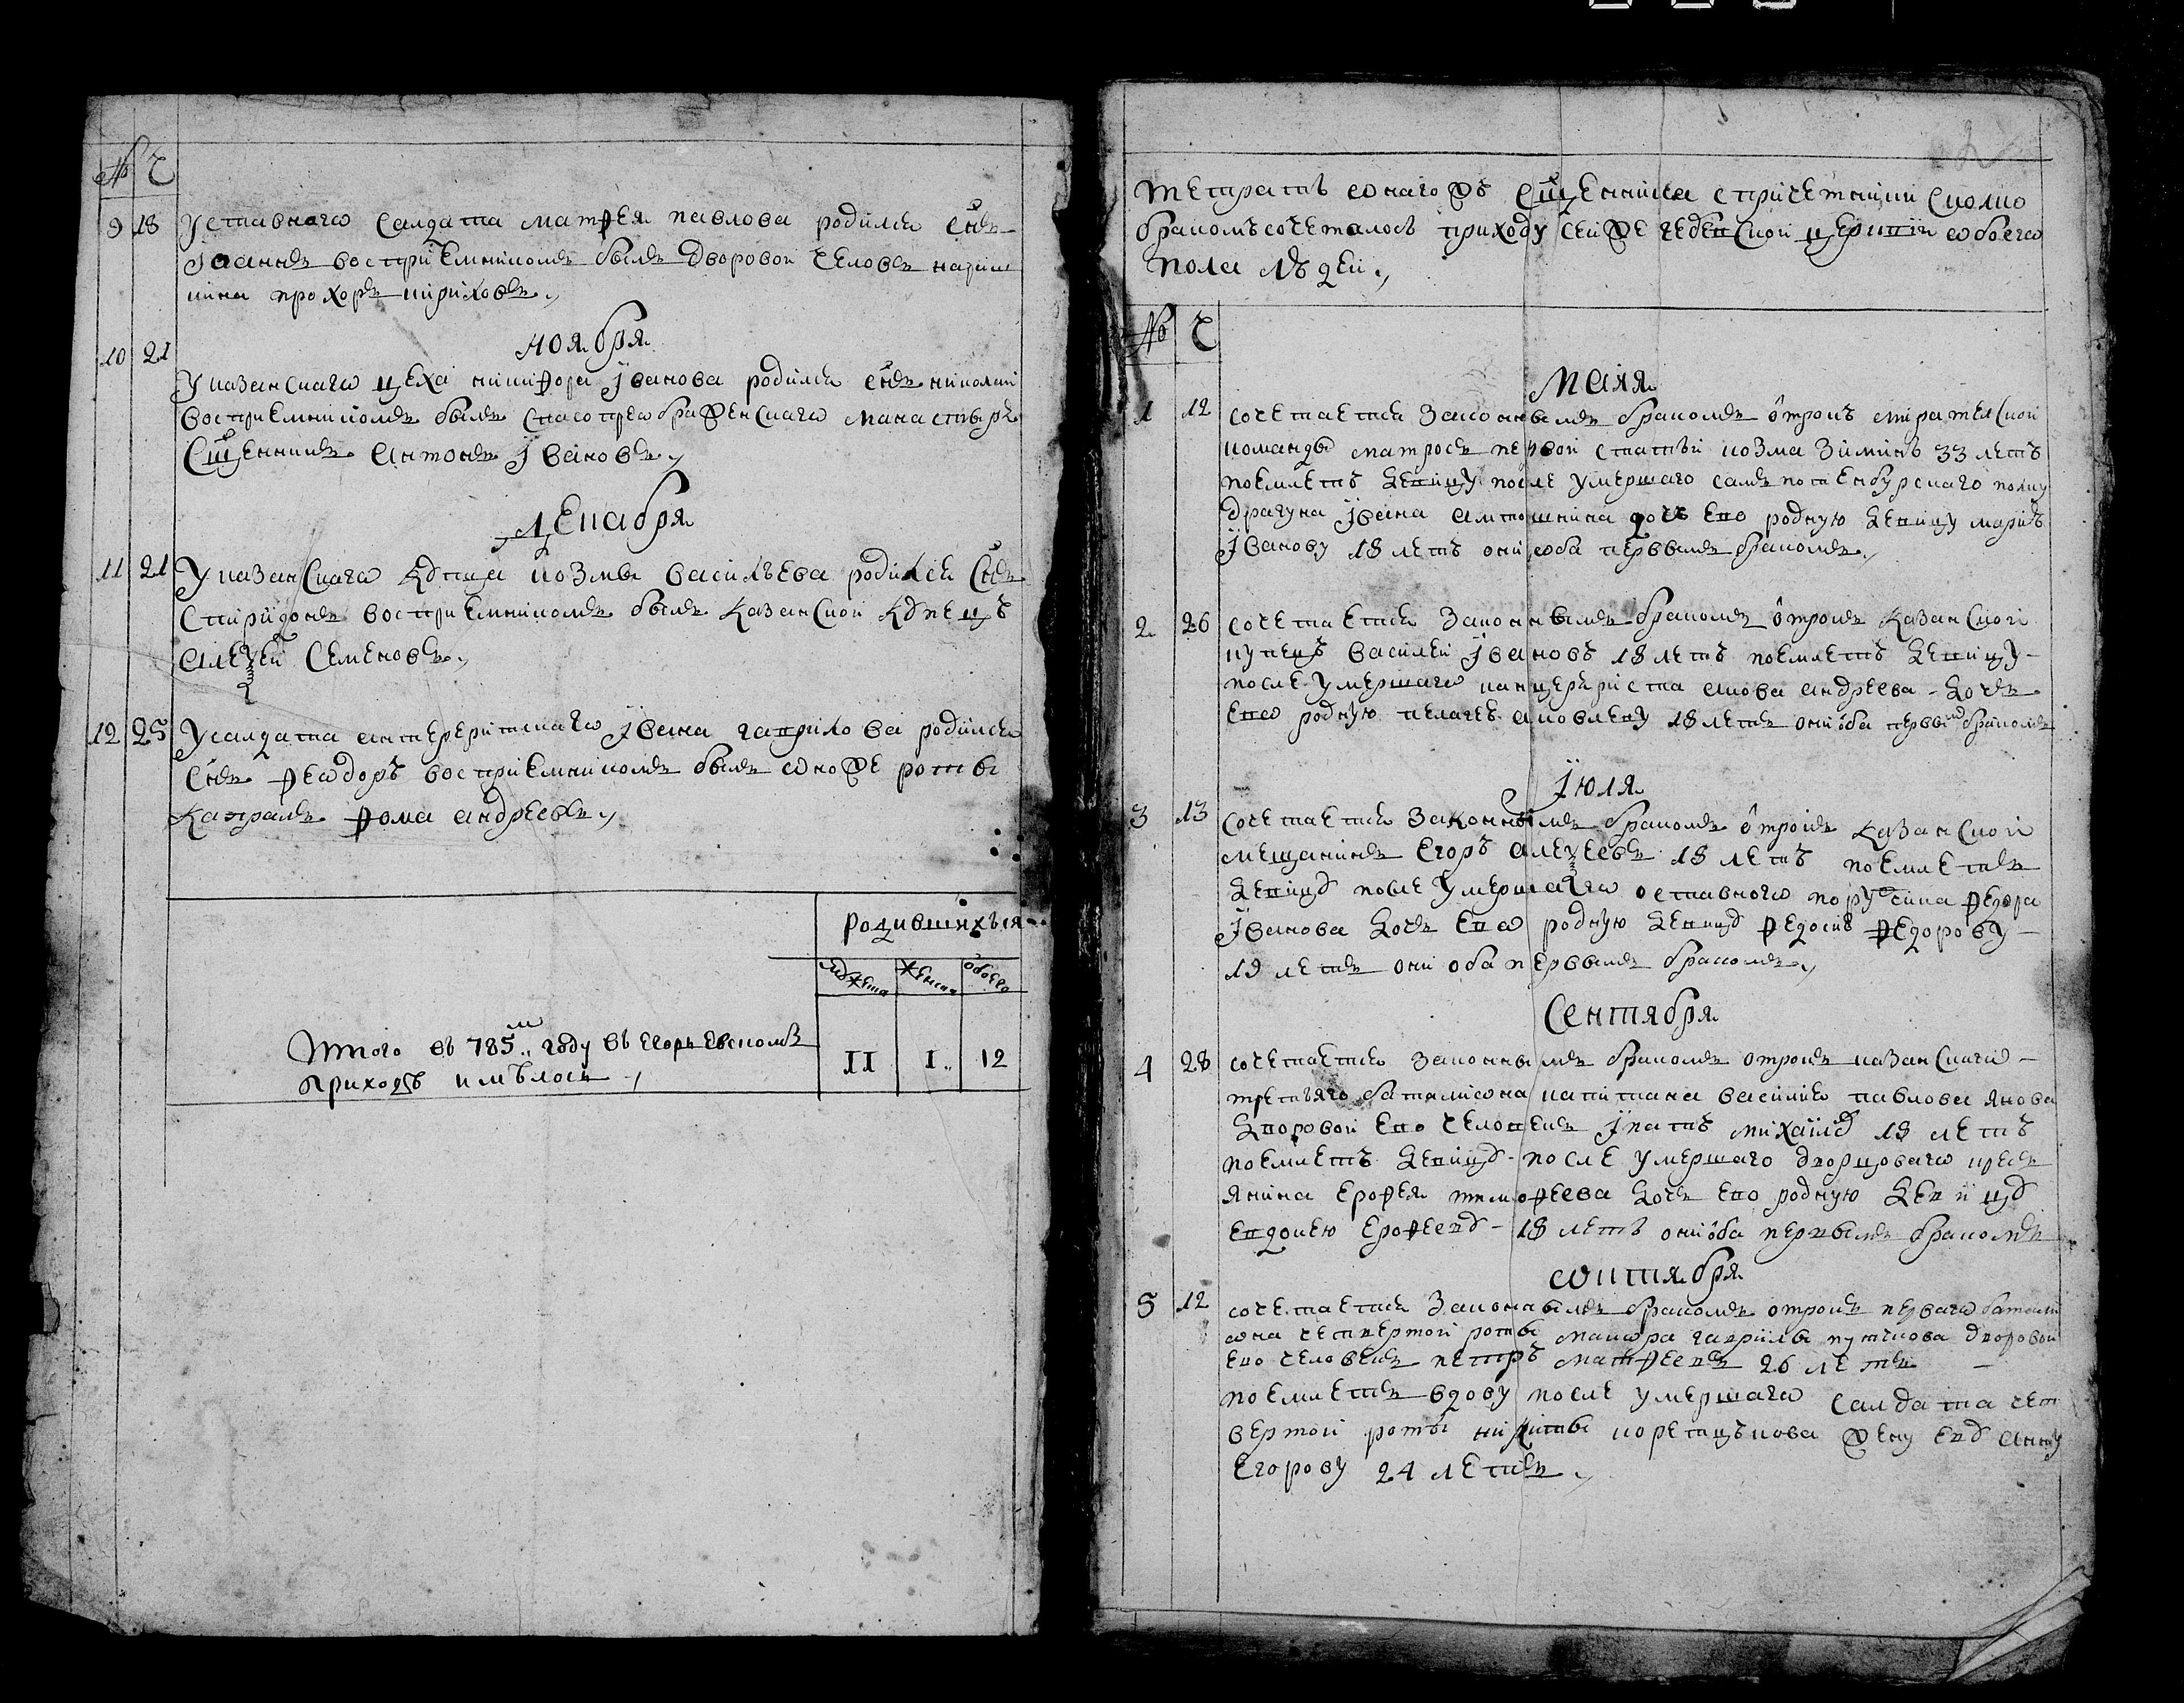 № Ч
9 18 У ставного салдата матфея павлова родился снъ
Їоаннъ восприемникомъ былъ дворовой челове
прохоръ
ноября
10 21 У казанскаго цеха никифора Їванова родился снъ николай
восприемникомъ былъ спасопреображенскаго манастыря
сщенникъ антонъ Ївановъ
декабря
11 21 У казанскаго купца козмы васильева родился снъ
спиридонъ восприемникомъ былъ казанской купецъ
алеѯей семеновъ
12 25 У салдата Ївана гаврилова родился
снъ феѡдоръ восприемникомъ былъ ѡноже роты
капралъ фома андреевъ
родившихъся
мужеска женска обоего
Итого въ 785м году въ егорьевскомъ
приходѣ имѣлось
II I 12
тетрать ѡнагожъ сщенника спричетники сколко
бракомъсочеталось приходу сеиже церкви ѡбоегѡ
пола людей
№ Ч
маия
1 12 сочетается законнымъ бракомъ отрокъ
команды матросъ первой статьи козма зиминъ 33 летъ
поемлетъ девицу после умершаго полку
драгуна Ївана дочь ево родную девицу марию
Їванову 18 летъ они ѡба первымъ бракомъ
2 26 сочетается законнымъ бракомъ отрокъ казанской
купецъ василей Ївановъ 18 летъ поемлетъ девицу
после умершагѡ канцеляриста андреева дочь
евѡ родную пелагею 18 летъ они оба первымъ бракомъ
Їюля
3 13 сочетается законнымъ бракомъ отрокъ казанской
мещанинъ егоръ алеѯеевъ 18 летъ поемлетъ
девицу после умершагѡ оставного поручика федора
Їванова дочь евѡ родную девицу федосью федорову
19 летъ они оба первымъ бракомъ
сентября
4 28 сочетается законнымъ бракомъ отрокъ казанскагѡ
третьяго баталиѡна капитана василия павлова янова
дворовой ево человекъ Їпатъ 18 летъ
поемлетъ девицу после умершаго дворцовагѡ кресть
янина ерофея тимофеева дочь ево родную девицу
евдокею ерофееву 18 летъ они оба первымъ бракомъ
ѡктября
5 12 сочетается законнымъ бракомъ отрокъ первагѡ баталi
ѡна четвертой роты маиѡра гаврилы дворовой
ево человекъ петръ матфеевъ 26 летъ
поемлетъ вдову после умершагѡ салдата чет
вертой роты никиты жену еву анну
егорову 24 летъ